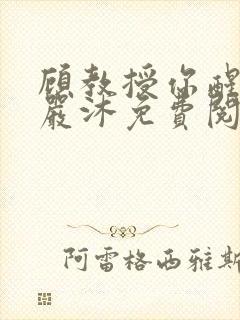 顾教授你醒
严沐免费阅
阿雷格西雅斯